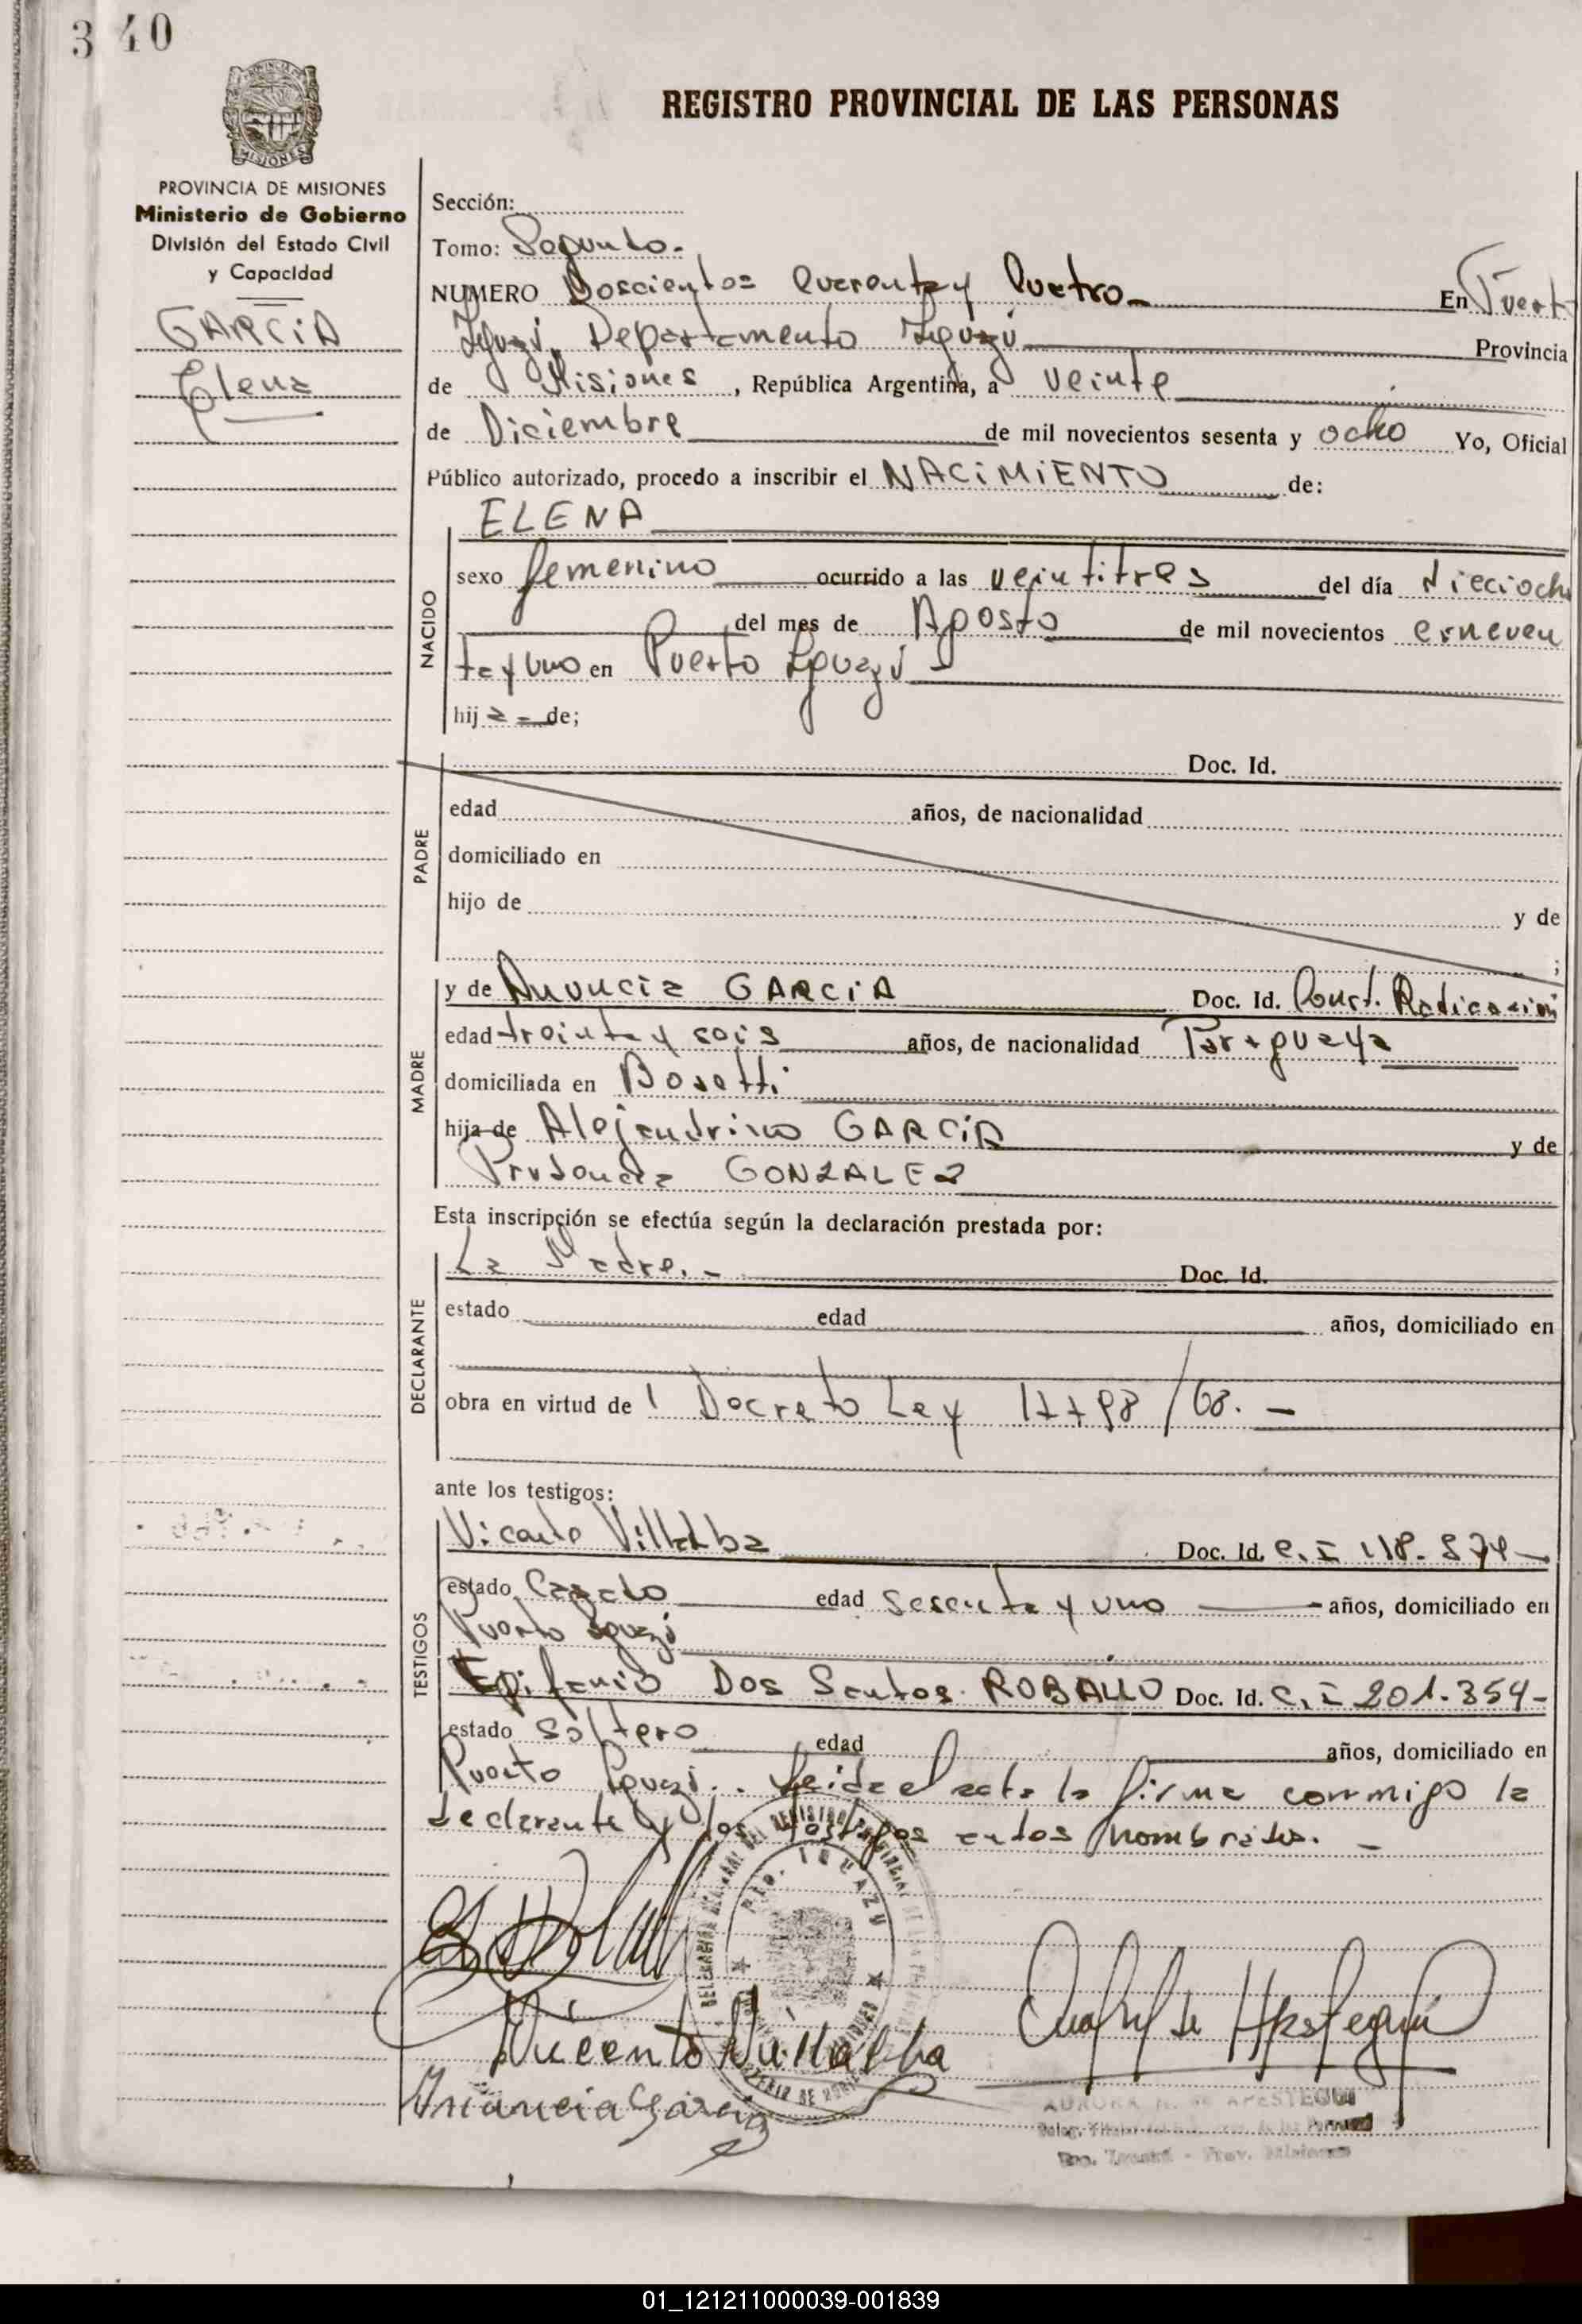 3 40
REGISTRO PROVINCIAL DE LAS PERSONAS
MISIONES
PROVINCIA DE MISIONES
Ministerio de Gobierno
División del Estado Civil
y Capacidad
GARCIA
Elena
Sección:
Tomo: Segundo.-
NUMERO Doscientos Cuarenta y Cuatro.- En Puerto
Iguazú, Departamento Iguazú Provincia
de Misiones, República Argentina, a veinte
de Diciembre de mil novecientos sesenta y ocho Yo, Oficial
Público autorizado, procedo a inscribir el NACIMIENTO de:
ELENA
NACIDO
sexo femenino ocurrido a las veintitres del día dieciocho
del mes de Agosto de mil novecientos
ta y uno en Puerto Iguazú
hija de;
PADRE
Doc. Id.
edad años, de nacionalidad
domiciliado en
hijo de y de
;
MADRE
y de Anuncia GARCIA Doc. Id. Const. Radicación
edad treinta y seis años, de nacionalidad Paraguaya
domiciliada en Bosetti
hija de Alejandrino GARCIA y de
Prudencia GONZALEZ
Esta inscripción se efectúa según la declaración prestada por:
DECLARANTE
La Madre.- Doc. Id.
estado edad años, domiciliado en
obra en virtud de Decreto Ley /68.-
ante los testigos:
TESTIGOS
Vicente Villalba Doc. Id. C.I 118.574-
estado Casado edad Sesenta y uno años, domiciliado en
Puerto Iguazú
Epifanio Dos Santos ROBALLO Doc. Id. C.I 201.354-
estado Soltero edad años, domiciliado en
Puerto Iguazú.. Leida el acta la firma conmigo la
declarante y los testigos nombrados.-
DELEGACION DEL REGISTRO PROVINCIAL DE LAS PERSONAS
PTO. IGUAZU
Vicente Villalba
Anuncia Garcia
de Apestegui
AURORA DE APESTEGUI
Pto. Iguazú - Prov. Misiones
01_121211000039-001839